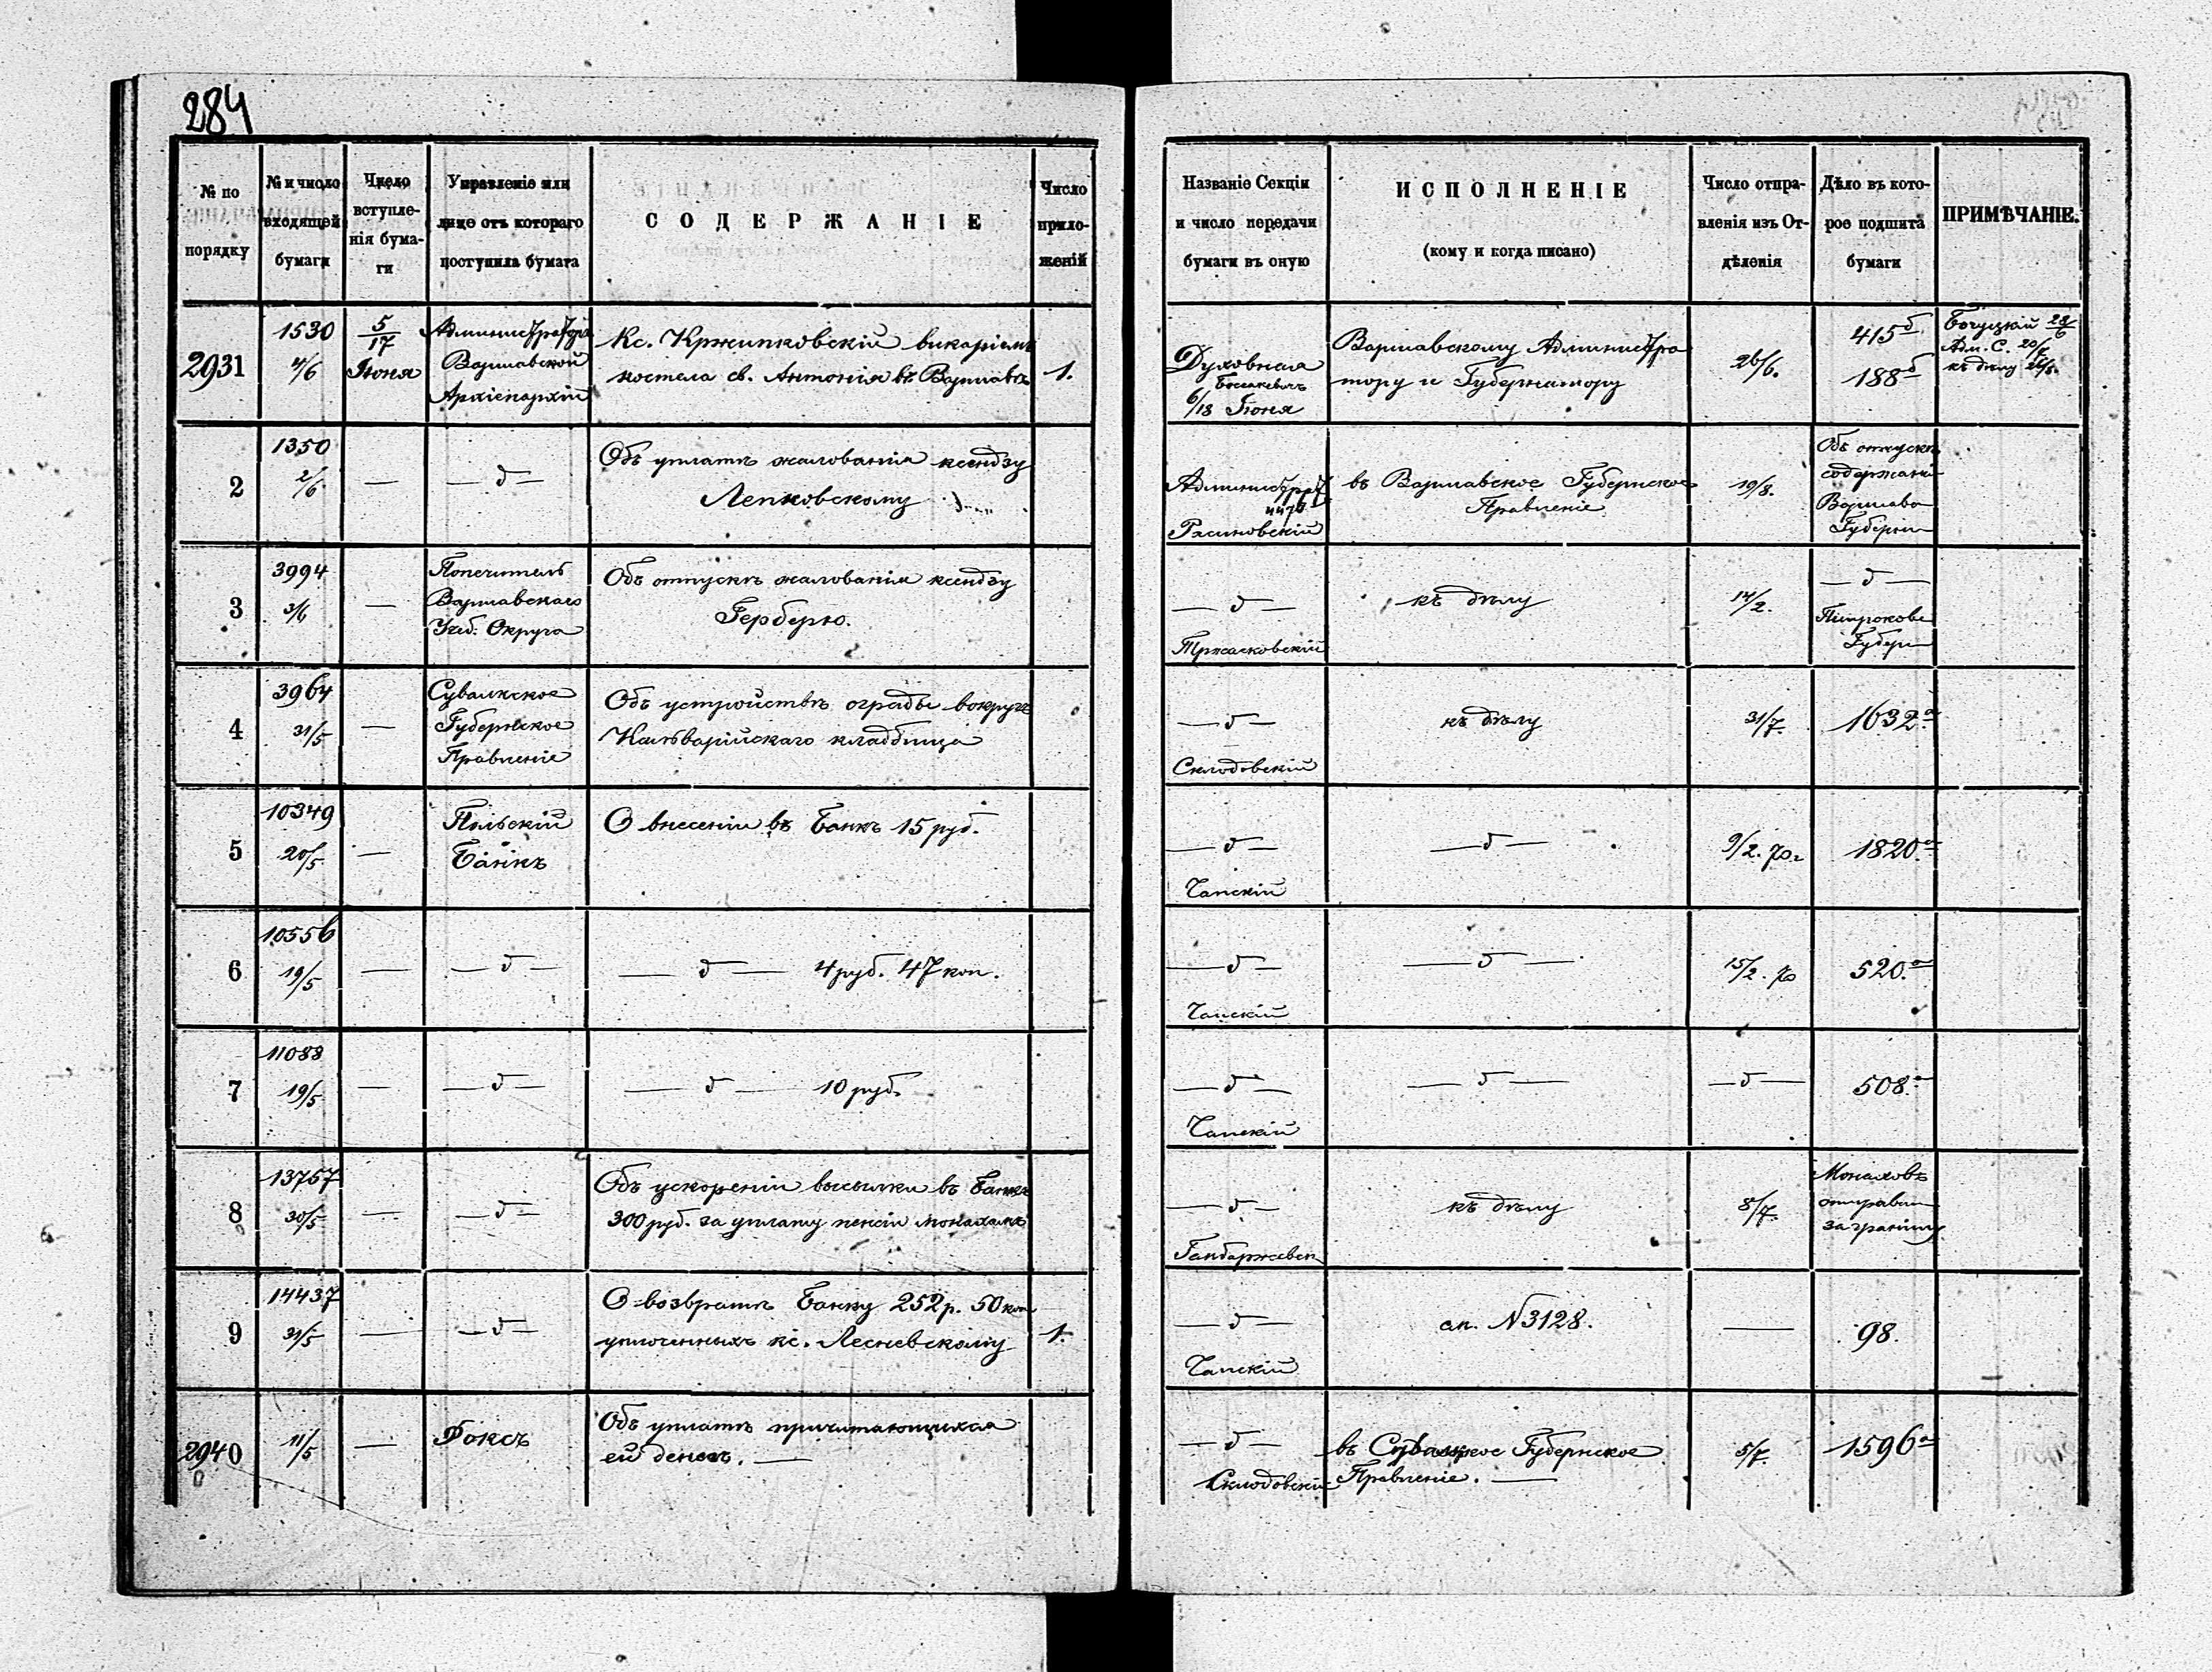 284
№ по порядку
№ и число входящей бумаги
Число вступле-
нія бума-
ги
Управленіе или
лице отъ котораго
поступила бумага
СОДЕРЖАНІЕ
Число
прило-
женій
Названіе Секціи
и число передачи
бумаги въ оную
ИСПОЛНЕНІЕ
(кому и когда писано)
Число отпра-
вленія изъ От-
дѣленія
Дѣло въ кото-
рое подшита
бумаги
ПРИМѢЧАНІЕ.
2931
1530
4/6
5/17
Іюня
Администратора
Варшавской
Архіепархій
Кс. Кржипковскій викаріемъ
костела св. Антонія въ Варшавѣ
1.
Духовная
6/18 Іюня
Варшавскому Администра
тору и Губернатору
26/6.
415б
188б
Адм. С. 20/7
къ дѣлу
2
1350
2/6
—
— д —
Объ уплатѣ жалованія ксендзу
Лепковскому
Администрат
4476
въ Варшавское Губернское
Правленіе
19/8.
Объ отпускѣ
содержані
Варшавс
Губерніи
3
3994
3/6
—
Попечитель
Варшавскаго
Учеб. Округа
Объ отпускѣ жалованія ксендзу
Герберю.
— д —
Тржасковскій
къ дѣлу
14/2.
— д —
Піотрокове
Губерн
4
3964
31/5
—
Сувалкское
Губернское
Правленіе
Объ устройствѣ ограды вокругъ
Кальварійскаго кладбища
— д —
Склодовскій
къ дѣлу
31/7.
1632а
5
10349
20/5
—
Польскій
Банкъ
О внесеніи въ Банкъ 15 руб.
— д —
Чапскій
— д —
9/2. 70 г
1820.а
6
10556
19/5
—
— д —
— д — 4 руб. 47 коп.
— д —
Чапскій
— д —
15/2. 70
520.а
7
11088
19/5
—
— д —
— д — 10 руб.
— д —
Чапскій
— д —
— д —
508.а
8
13757
30/5
—
— д —
Объ ускореніи высылки въ Банкъ
300 руб. за уплату пенсіи монахамъ
— д —
къ дѣлу
8/7.
Монаховъ
отправлен
за границу.
9
14437
31/5
—
— д —
О возвратѣ Банку 252 р. 50 коп
уплоченныхъ кс. Лесневскому
1.
— д —
Чапскій
сл. №3128.
—
98.
2940
11/5
—
Фоксъ
Объ уплатѣ причитающихся
ей денегъ. —
— д —
Склодовскій
въ Сувалкское Губернское
Правленіе. —
5/7.
1596а